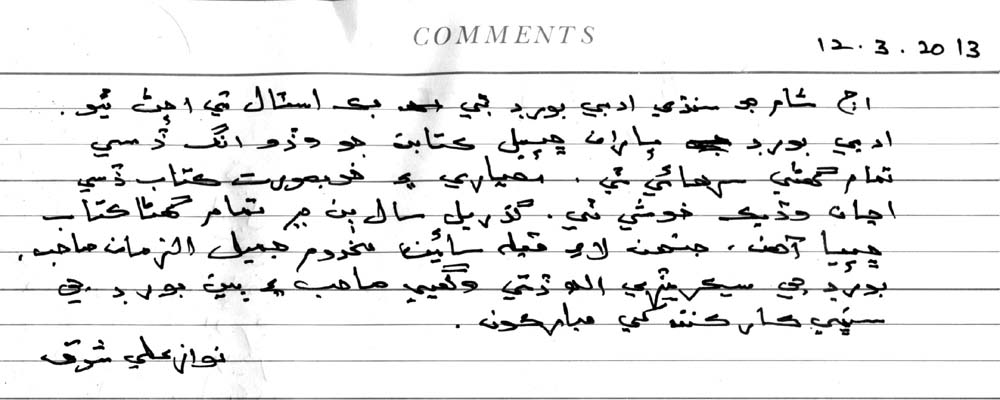 COMMENTS
12.3.2013
اڄ شام جو سنڌي ادبي بورڊ جي بڪ اسٽال تي اچڻ ٿيو.
ادبي بورڊ پاران ڇپيل ڪتابن جو وڏو انگ ڏسي
تمام گهڻي سرهائي ٿي. معياري ۽ خوبصورت ڪتاب ڏسي
اڃان وڌيڪ خوشي ٿي. گذريل سال ٻن ۾ تمام گهڻا ڪتاب
ڇپيا آهن. جنهن لاءِ قبله سائين مخدوم جميل الزمان صاحب،
بورڊ جي سيڪريٽري الهڏتي وگهيي صاحب ۽ ٻين بورڊ جي
سڀني ڪار ڪنن کي مبارڪون.
نواز علي شوق